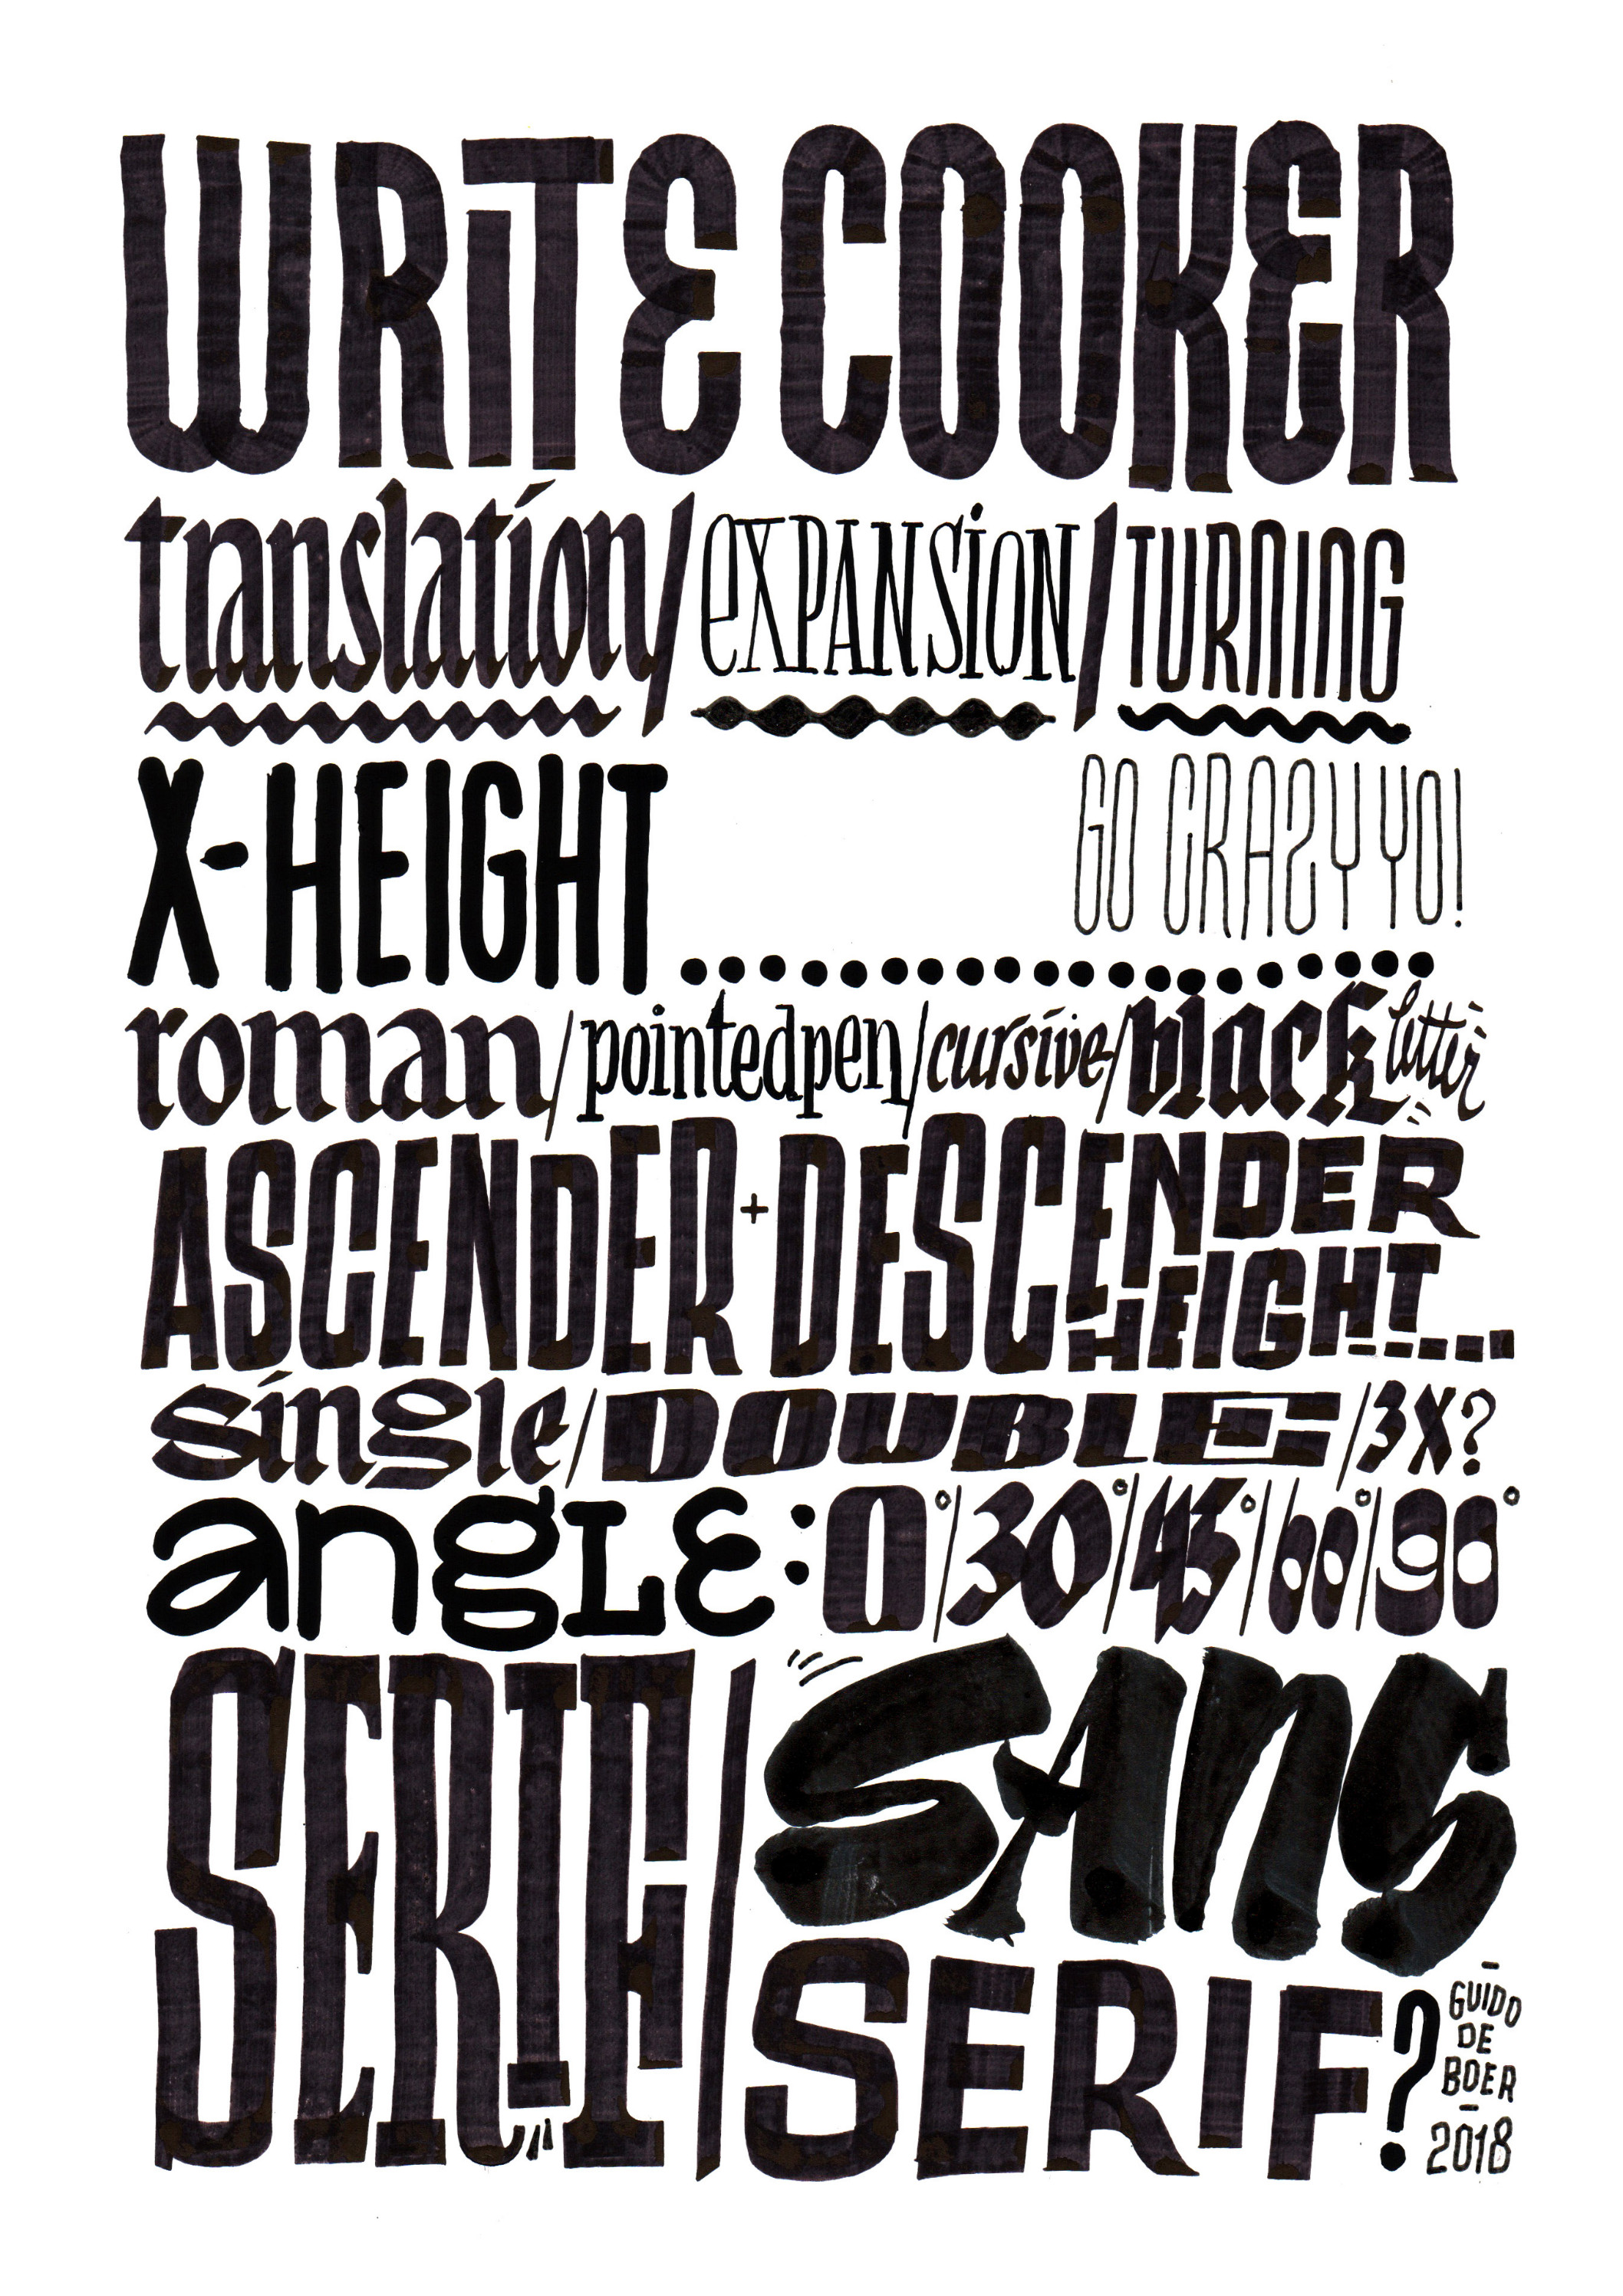 WRiTE COOKER
translation/eXPANSiON/TURNING
X-HEIGHT
GO CRAZY YO!
roman/pointedpen/cursive/black letter
ASCENDER+DESCENDER
HEIGHT...
single/DOUBLE/3X?
angLE:0°/30°/45°/60°/90°
SERIF/SANS
SERIF?
GUIDO
DE
BOER
2018